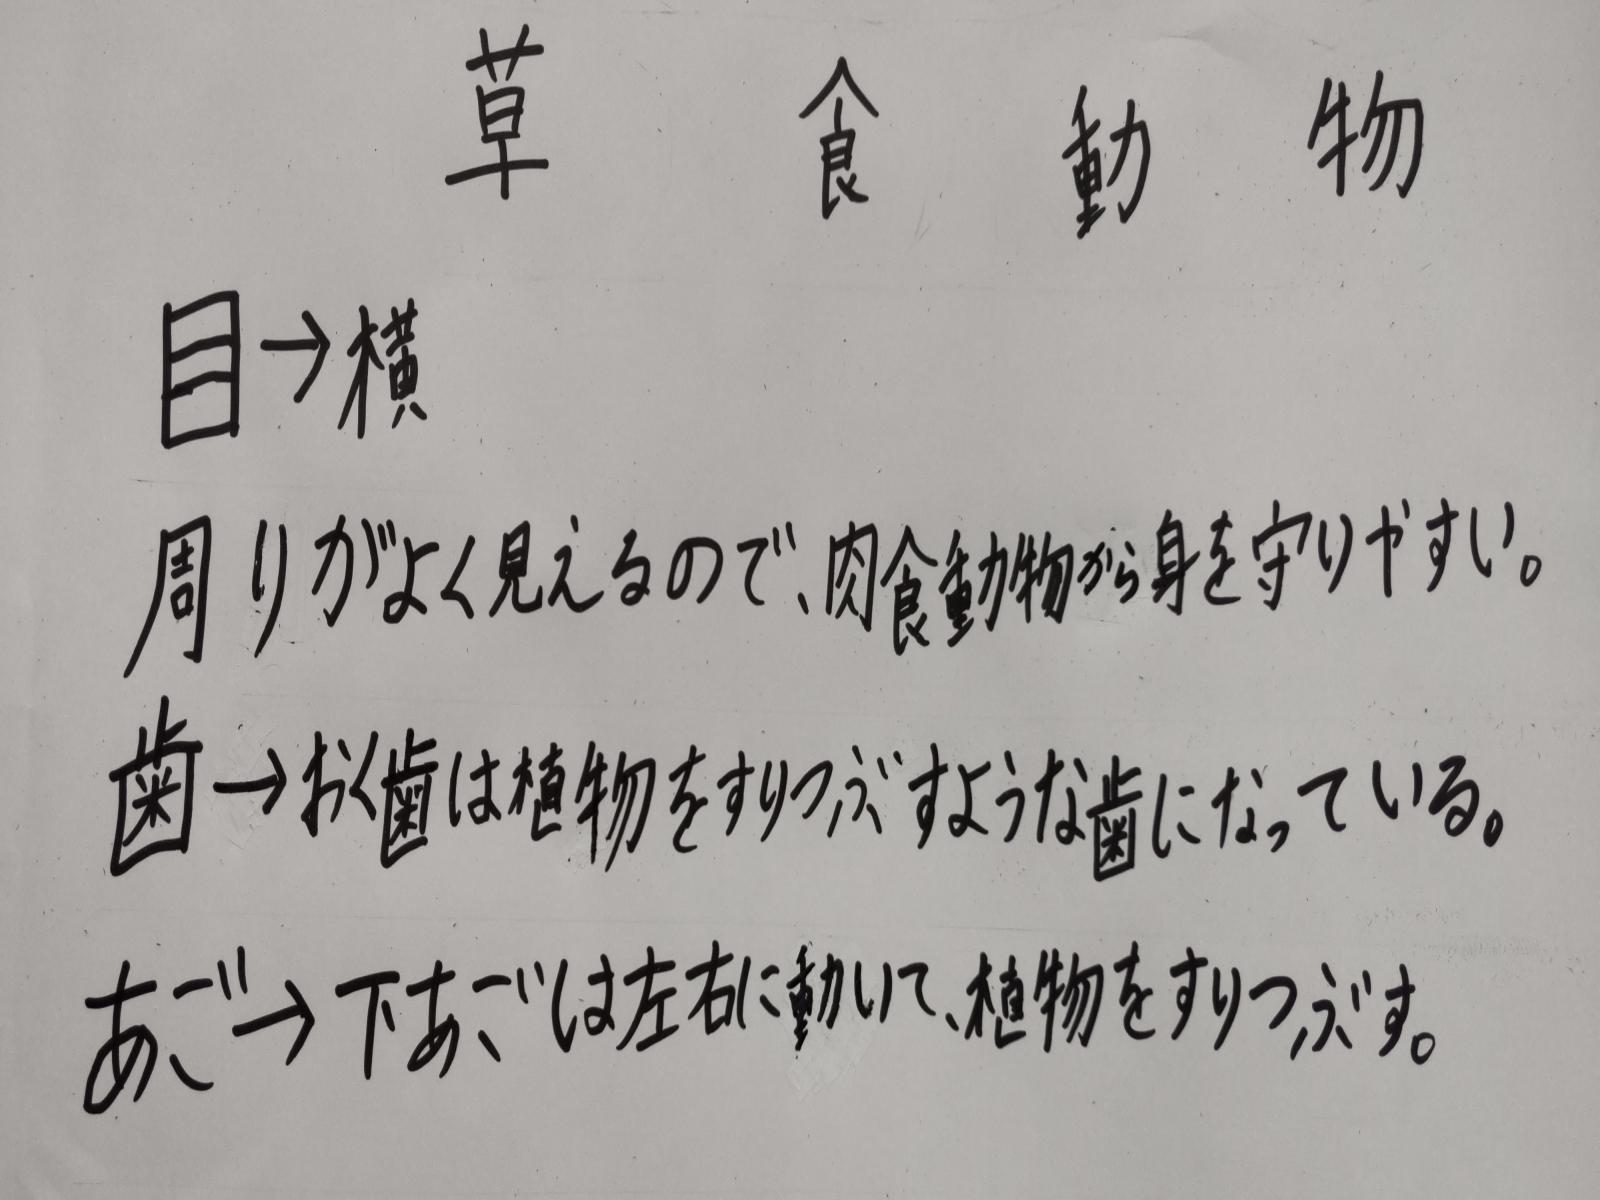 草食動物
目→横
周りがよく見えるので、肉食動物から身を守りやすい。
歯→おく歯は植物をすりつぶすような歯になっている。
あご→下あごは左右に動いて、植物をすりつぶす。